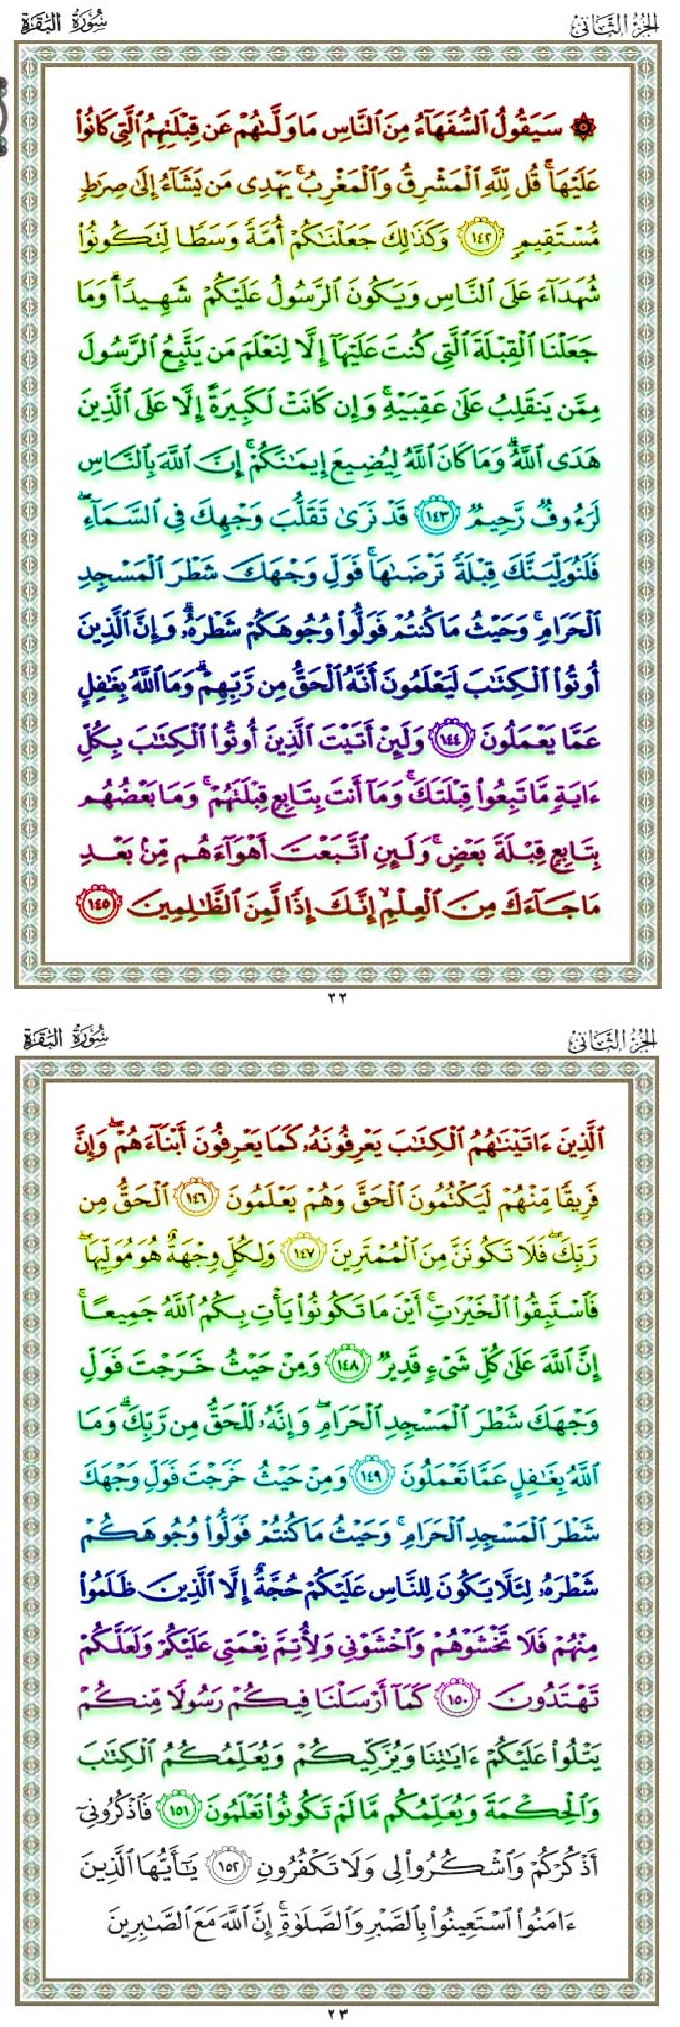 الجزء الثاني
سورة البقرة
۞ سَيَقُولُ ٱلسُّفَهَآءُ مِنَ ٱلنَّاسِ مَا وَلَّىٰهُمْ عَن قِبْلَتِهِمُ ٱلَّتِى كَانُوا۟
عَلَيْهَا ۚ قُل لِّلَّهِ ٱلْمَشْرِقُ وَٱلْمَغْرِبُ ۚ يَهْدِى مَن يَشَآءُ إِلَىٰ صِرَٰطٍ
مُّسْتَقِيمٍ ١٤٢ وَكَذَٰلِكَ جَعَلْنَٰكُمْ أُمَّةً وَسَطًا لِّتَكُونُوا۟
شُهَدَآءَ عَلَى ٱلنَّاسِ وَيَكُونَ ٱلرَّسُولُ عَلَيْكُمْ شَهِيدًا ۗ وَمَا
جَعَلْنَا ٱلْقِبْلَةَ ٱلَّتِى كُنتَ عَلَيْهَآ إِلَّا لِنَعْلَمَ مَن يَتَّبِعُ ٱلرَّسُولَ
مِمَّن يَنقَلِبُ عَلَىٰ عَقِبَيْهِ ۚ وَإِن كَانَتْ لَكَبِيرَةً إِلَّا عَلَى ٱلَّذِينَ
هَدَى ٱللَّهُ ۗ وَمَا كَانَ ٱللَّهُ لِيُضِيعَ إِيمَٰنَكُمْ ۚ إِنَّ ٱللَّهَ بِٱلنَّاسِ
لَرَءُوفٌ رَّحِيمٌ ١٤٣ قَدْ نَرَىٰ تَقَلُّبَ وَجْهِكَ فِى ٱلسَّمَآءِ ۖ
فَلَنُوَلِّيَنَّكَ قِبْلَةً تَرْضَىٰهَا ۚ فَوَلِّ وَجْهَكَ شَطْرَ ٱلْمَسْجِدِ
ٱلْحَرَامِ ۚ وَحَيْثُ مَا كُنتُمْ فَوَلُّوا۟ وُجُوهَكُمْ شَطْرَهُۥ ۗ وَإِنَّ ٱلَّذِينَ
أُوتُوا۟ ٱلْكِتَٰبَ لَيَعْلَمُونَ أَنَّهُ ٱلْحَقُّ مِن رَّبِّهِمْ ۗ وَمَا ٱللَّهُ بِغَٰفِلٍ
عَمَّا يَعْمَلُونَ ١٤٤ وَلَئِنْ أَتَيْتَ ٱلَّذِينَ أُوتُوا۟ ٱلْكِتَٰبَ بِكُلِّ
ءَايَةٍ مَّا تَبِعُوا۟ قِبْلَتَكَ ۚ وَمَآ أَنتَ بِتَابِعٍ قِبْلَتَهُمْ ۚ وَمَا بَعْضُهُم
بِتَابِعٍ قِبْلَةَ بَعْضٍ ۚ وَلَئِنِ ٱتَّبَعْتَ أَهْوَآءَهُم مِّنۢ بَعْدِ
مَا جَآءَكَ مِنَ ٱلْعِلْمِ ۙ إِنَّكَ إِذًا لَّمِنَ ٱلظَّٰلِمِينَ ١٤٥
٢٢
الجزء الثاني
سورة البقرة
ٱلَّذِينَ ءَاتَيْنَٰهُمُ ٱلْكِتَٰبَ يَعْرِفُونَهُۥ كَمَا يَعْرِفُونَ أَبْنَآءَهُمْ ۖ وَإِنَّ
فَرِيقًا مِّنْهُمْ لَيَكْتُمُونَ ٱلْحَقَّ وَهُمْ يَعْلَمُونَ ١٤٦ ٱلْحَقُّ مِن
رَّبِّكَ ۖ فَلَا تَكُونَنَّ مِنَ ٱلْمُمْتَرِينَ ١٤٧ وَلِكُلٍّ وِجْهَةٌ هُوَ مُوَلِّيهَا ۖ
فَٱسْتَبِقُوا۟ ٱلْخَيْرَٰتِ ۚ أَيْنَ مَا تَكُونُوا۟ يَأْتِ بِكُمُ ٱللَّهُ جَمِيعًا ۚ
إِنَّ ٱللَّهَ عَلَىٰ كُلِّ شَىْءٍ قَدِيرٌ ١٤٨ وَمِنْ حَيْثُ خَرَجْتَ فَوَلِّ
وَجْهَكَ شَطْرَ ٱلْمَسْجِدِ ٱلْحَرَامِ ۖ وَإِنَّهُۥ لَلْحَقُّ مِن رَّبِّكَ ۗ وَمَا
ٱللَّهُ بِغَٰفِلٍ عَمَّا تَعْمَلُونَ ١٤٩ وَمِنْ حَيْثُ خَرَجْتَ فَوَلِّ وَجْهَكَ
شَطْرَ ٱلْمَسْجِدِ ٱلْحَرَامِ ۚ وَحَيْثُ مَا كُنتُمْ فَوَلُّوا۟ وُجُوهَكُمْ
شَطْرَهُۥ لِئَلَّا يَكُونَ لِلنَّاسِ عَلَيْكُمْ حُجَّةٌ إِلَّا ٱلَّذِينَ ظَلَمُوا۟
مِنْهُمْ فَلَا تَخْشَوْهُمْ وَٱخْشَوْنِى وَلِأُتِمَّ نِعْمَتِى عَلَيْكُمْ وَلَعَلَّكُمْ
تَهْتَدُونَ ١٥٠ كَمَآ أَرْسَلْنَا فِيكُمْ رَسُولًا مِّنكُمْ
يَتْلُوا۟ عَلَيْكُمْ ءَايَٰتِنَا وَيُزَكِّيكُمْ وَيُعَلِّمُكُمُ ٱلْكِتَٰبَ
وَٱلْحِكْمَةَ وَيُعَلِّمُكُم مَّا لَمْ تَكُونُوا۟ تَعْلَمُونَ ١٥١ فَٱذْكُرُونِىٓ
أَذْكُرْكُمْ وَٱشْكُرُوا۟ لِى وَلَا تَكْفُرُونِ ١٥٢ يَٰٓأَيُّهَا ٱلَّذِينَ
ءَامَنُوا۟ ٱسْتَعِينُوا۟ بِٱلصَّبْرِ وَٱلصَّلَوٰةِ ۚ إِنَّ ٱللَّهَ مَعَ ٱلصَّٰبِرِينَ
٢٣